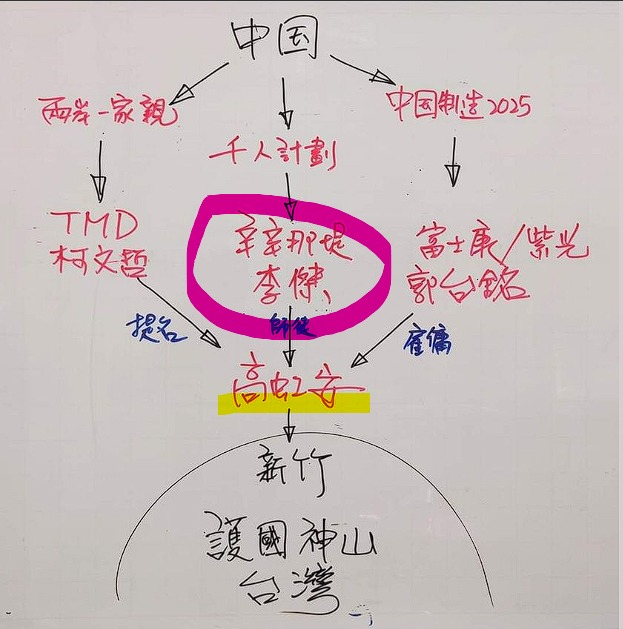 中国
兩岸一家親
千人計劃
中国制造2025
TMD
柯文哲
辛辛那堤
李傑
富士康/紫光
郭台銘
提名
師徒
雇傭
高虹安
新竹
護國神山
台灣